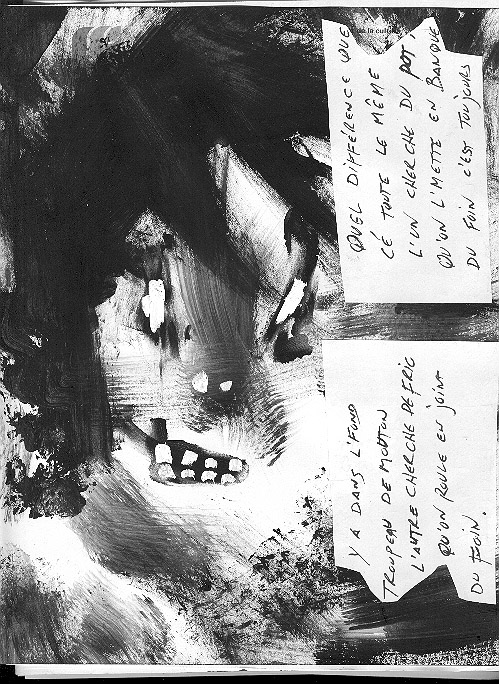 Y A DANS L'FOND
TROUPEAU DE MOUTON
L'AUTRE CHERCHE DE FRIC
QU'ON ROULE EN JOINT
DU FOIN.
QUEL DIFFÉRENCE QUE
CÉ TOUTE LE MÊME
L'UN CHERCHE DU POT,
QU'ON L'METTE EN BANQUE
DU FOIN C'EST TOUJOURS